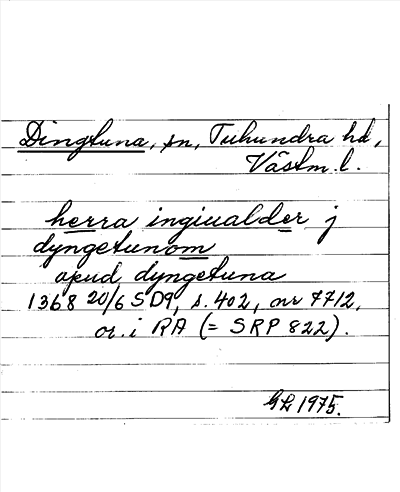 Dingtuna, sn, Tuhundra hd,
Västm. l.
herra ingiualder j
dyngetunom
apud dyngetuna
1368 20/6 SD9, s. 402, nr 7712,
or. i RA (= SRP 822).
GL 1975.